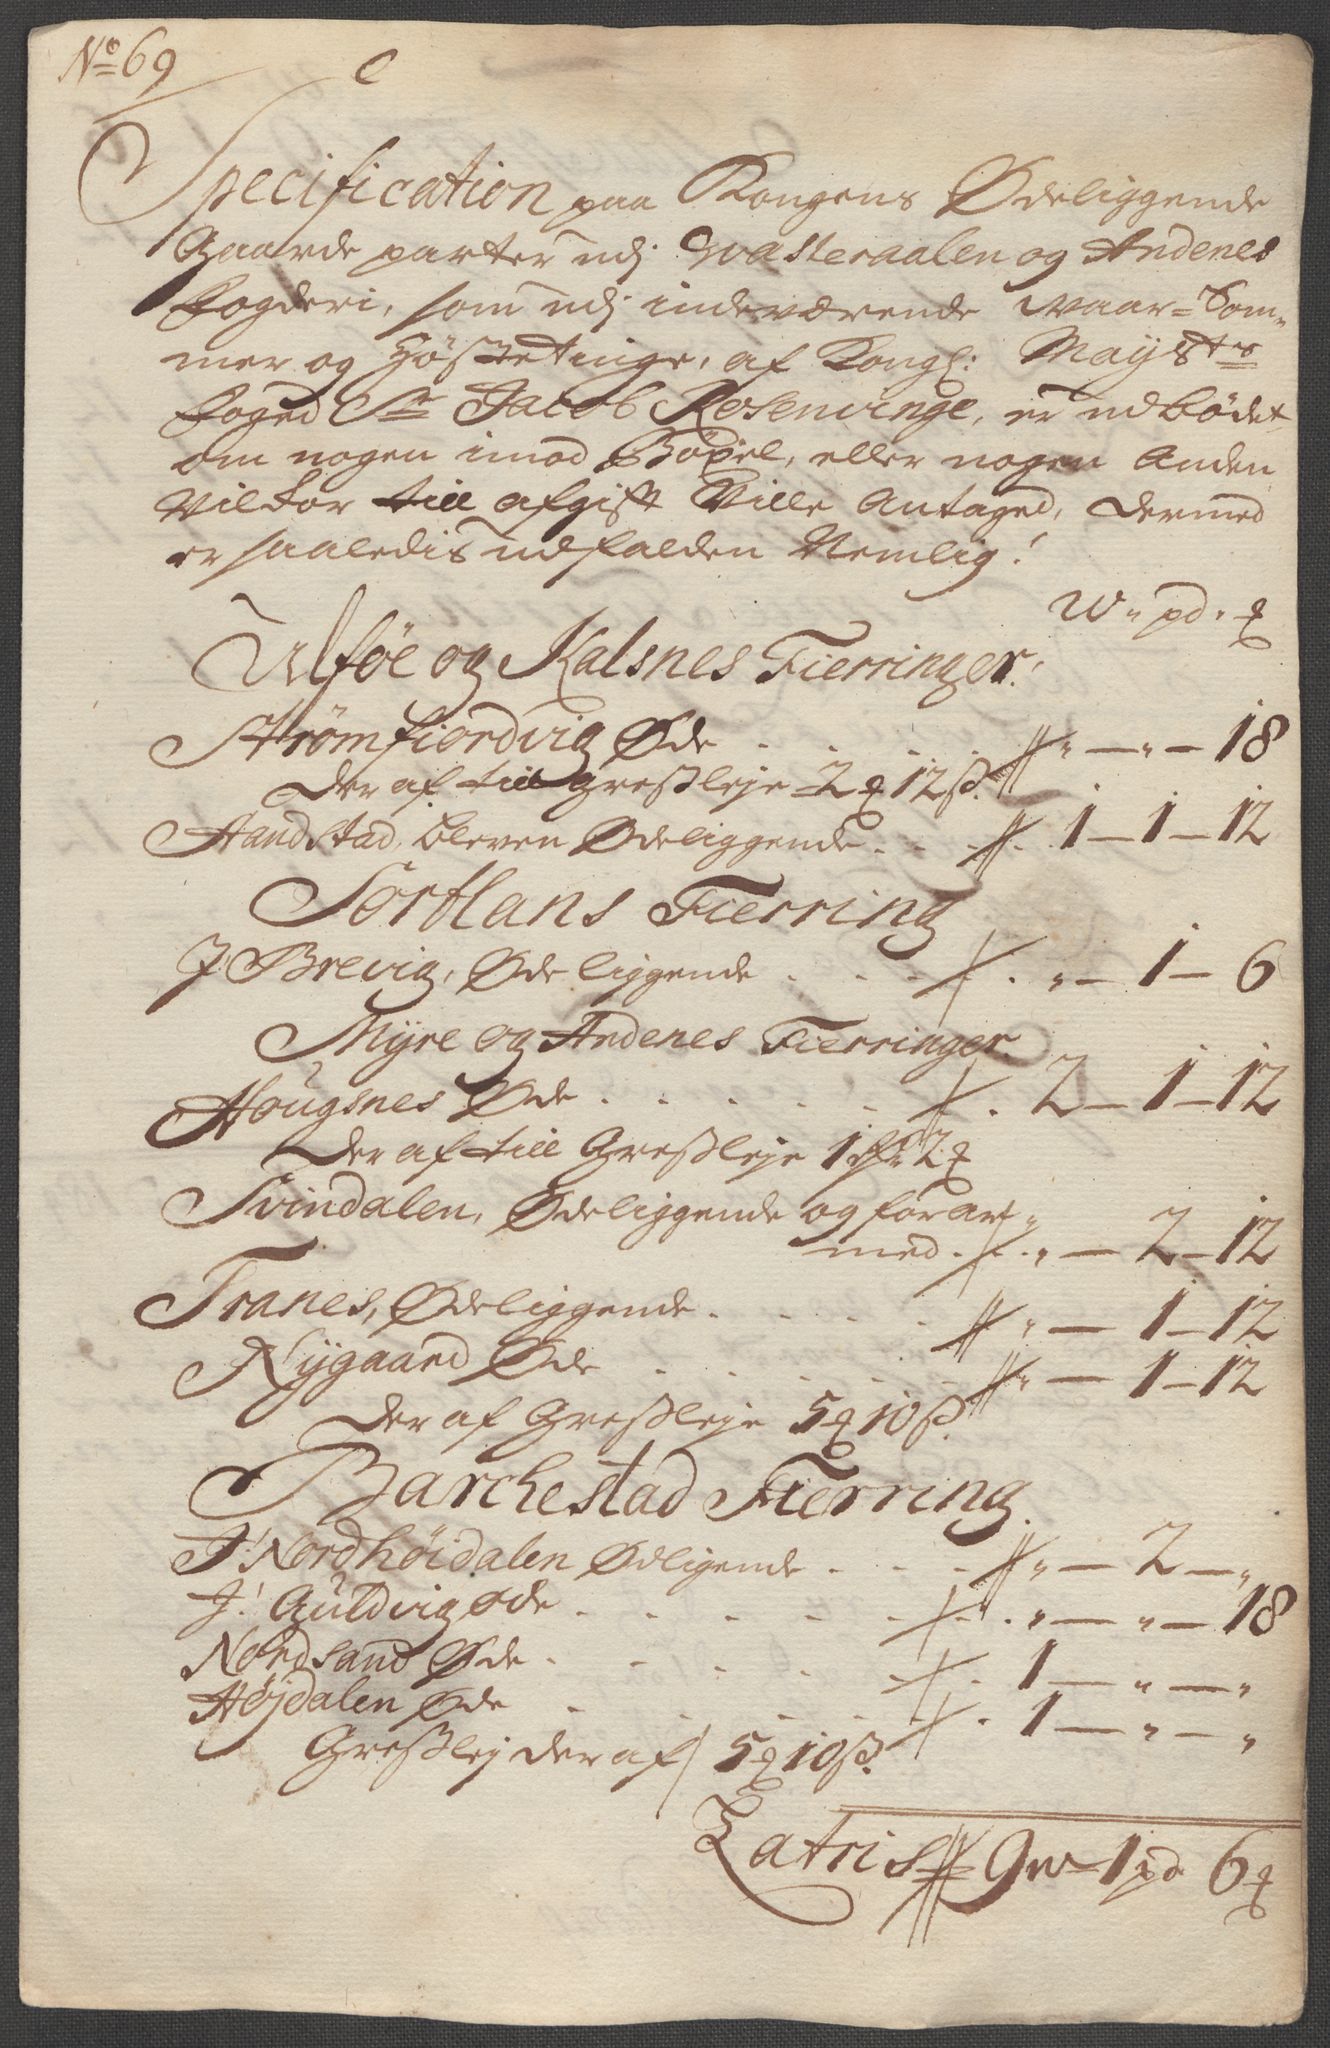 No 69
C
Specification paa Kongens Ødeliggende
Gaarde parter udj Wasteraalen og Andenes
Fogderi, som udj indeværende Waar- Som-
mer og Høstetinge, af Kongl: Mayts
Foged Sr Jacob Rosenvinge, er udbödet
om nogen imod Böxel, eller nogen Anden
Vilkor till afgift Ville Antaged, dermed
er saaledis udfalden Nemlig!
W " pd " ꝣ
Ulföe og Kalsnes Fierringer.
Strömfiordvig Øde . . . . " — " — 18
Der af till Gresleje 2 ꝣ 12 ß.
Handstad, bleven Ødeliggende . . . 1 — 1 — 12
Sortlans Fierring
J Brevig, Ødeliggende . . . . " — 1 — 6
Myre og Andenes Fierringer.
Hougsnes Øde . . . . . . 2 — 1 — 12
Der af till Gresleje 1 2 ꝣ
Svindalen, Ødeliggende og forar-
med . . " — 2 — 12
Tranes, Ødeliggende . . . . " — 1 — 12
Nygaard Øde . . . . . " — 1 — 12
Der af Gresleje 5 ꝣ 10 ß.
Barchestad Fierring.
J Nordhöidalen Ødligende . . . " — 2 — "
J Guldvig øde . . . . . . " — " — 18
Nordsand Øde . . . . . 1 — " — "
Höjdalen Øde . . . . . . 1 — " — "
Greslej der af 5 ꝣ 10 ß.
Latris 9 w 1 pd 6 ꝣ